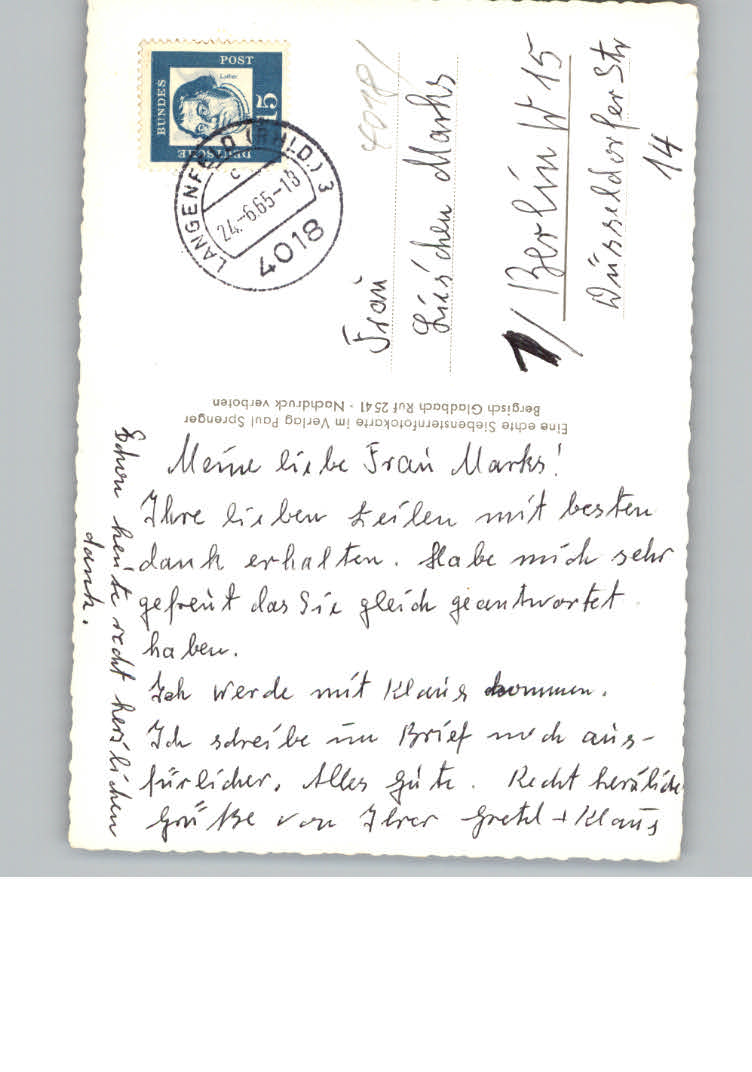 Meine liebe Frau Marks!
Ihre lieben Zeilen mit besten
dank erhalten. Habe mich sehr
gefreut das Sie gleich geantwortet
haben.
Ich werde mit Klaus kommen.
Ich schreibe im Brief noch aus-
fürlicher. Alles gute. Recht herzliche
Grüße von Ihrer Gretel + Klaus
Schon heute recht herzlichen
dank.
Eine echte Siebensternfotokarte im Verlag Paul Sprenger
Bergisch Gladbach Ruf 2541 - Nachdruck verboten
DEUTSCHE
BUNDES
POST
15
Luther
LANGENFELD (RHLD.) 3
c
24.-6.65-18
4018
4018/
Frau
Lieschen Marks
1/ Berlin W 15
Düsseldorfer Str
14